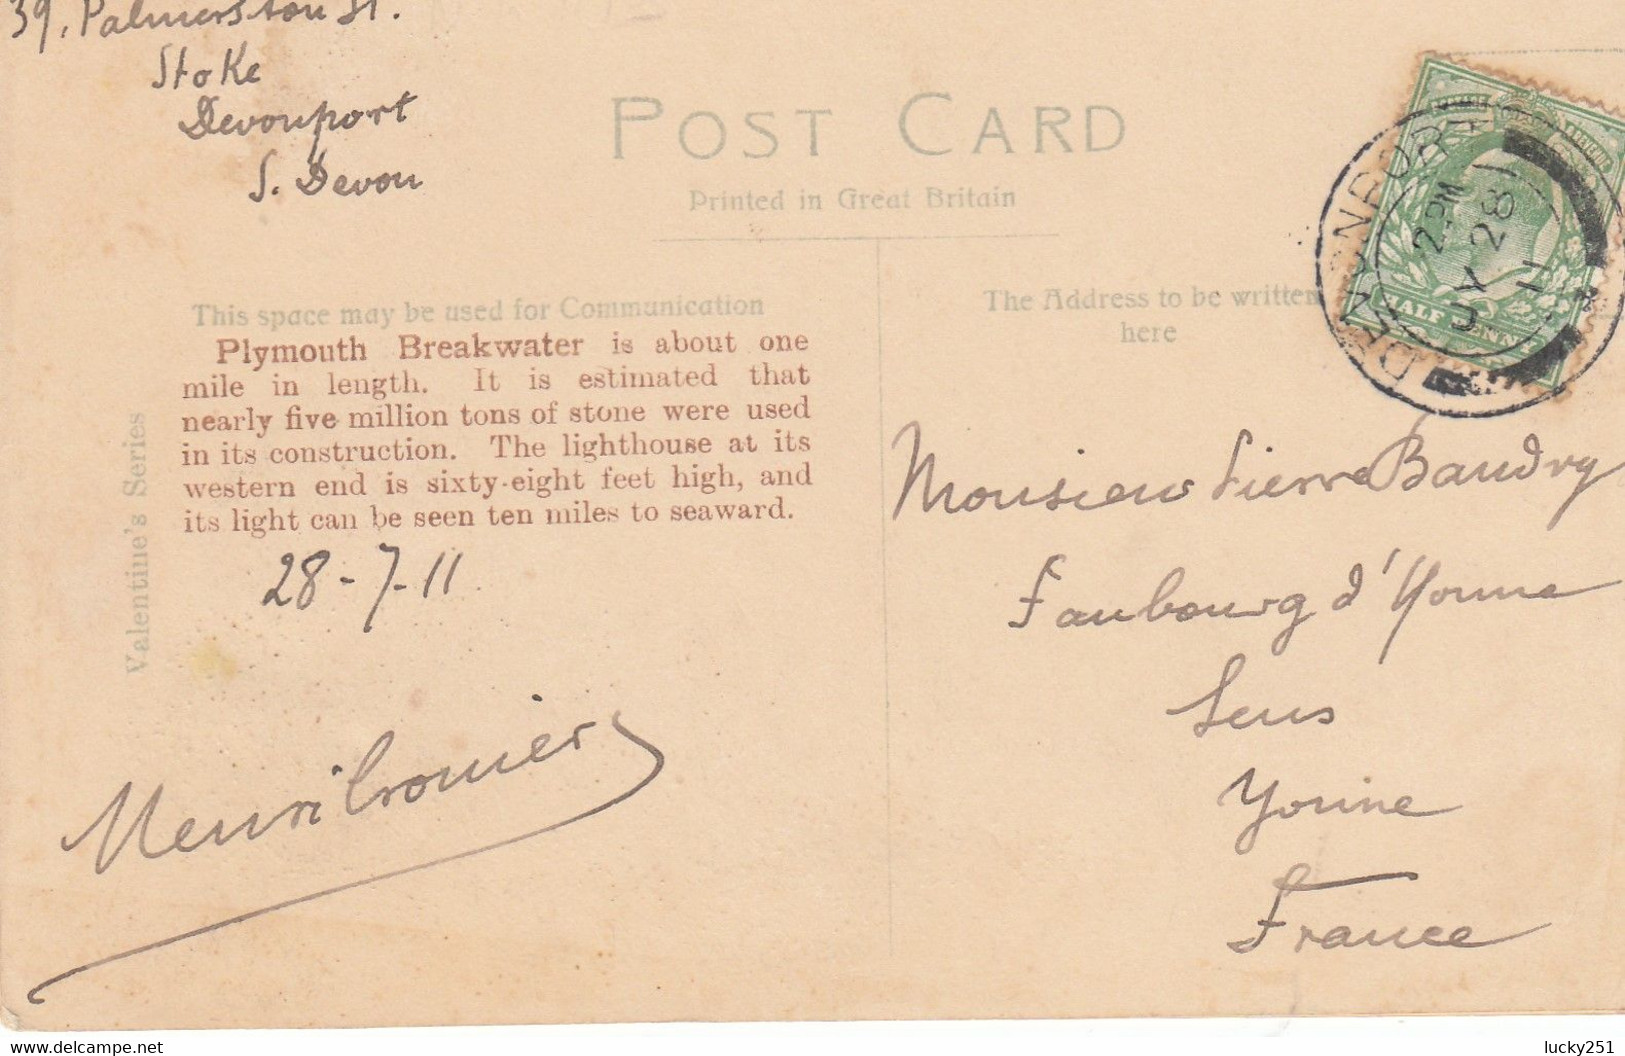 39, Palmerston St.
Stoke
Devonport
S. Devon
POST CARD
Printed in Great Britain
This space may be used for Communication
The Address to be written
here
Plymouth Breakwater is about one
mile in length. It is estimated that
nearly five million tons of stone were used
in its construction. The lighthouse at its
western end is sixty-eight feet high, and
its light can be seen ten miles to seaward.
Valentine's Series
28-7-11
DEVONPORT
2 PM
JY 28
11
HALF PENNY
Monsieur Pierre Baudry
Faubourg d'Yonne
Sens
Yonne
France
delcampe.net
lucky251